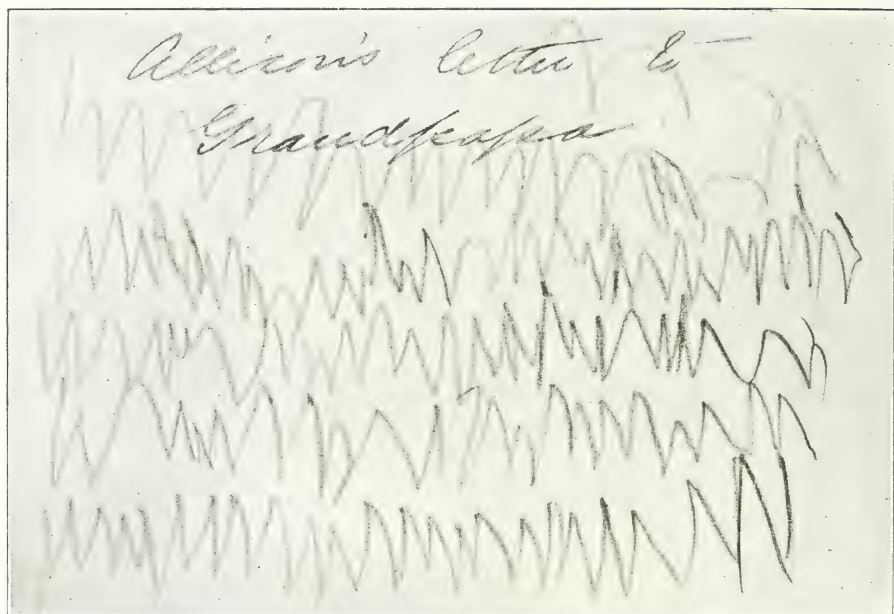 Allison's letter to
Grandpapa